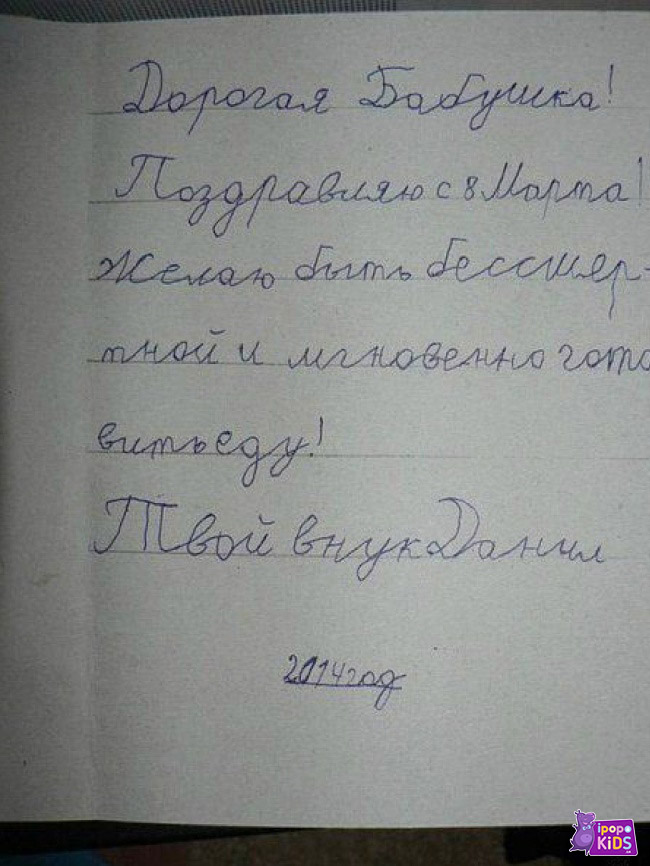 Дорогая Бабушка!
Поздравляю с 8 Марта!
Желаю быть бессмер-
тной и мгновенно гото
вить еду!
Твой внук Данил
2014 год
ipopo
KiDS